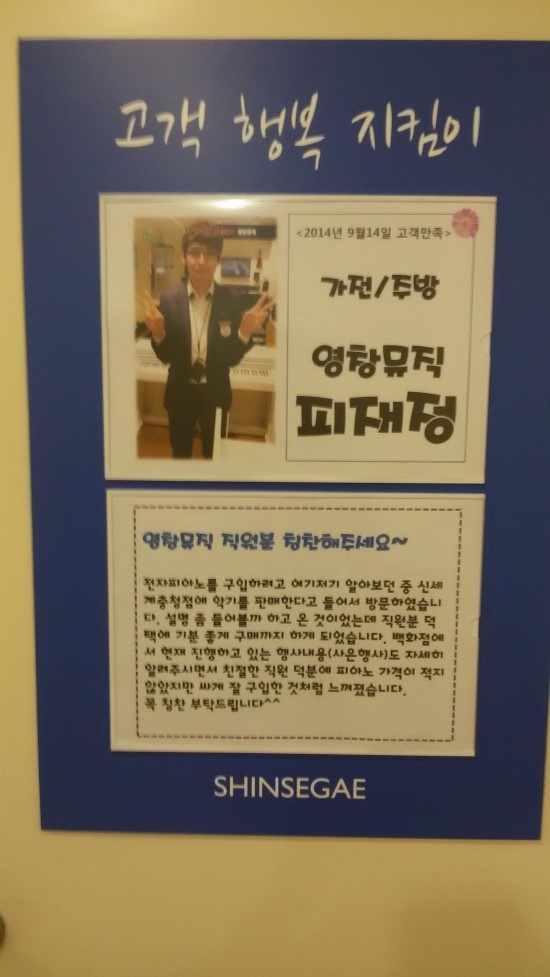 고객 행복 지킴이
<2014년 9월14일 고객만족>
가전/주방
영창뮤직
피재정
영창뮤직 직원분 칭찬해주세요~
전자피아노를 구입하려고 여기저기 알아보던 중 신세
계충청점에 악기를 판매한다고 들어서 방문하였습니
다. 설명 좀 들어볼까 하고 온 것이었는데 직원분 덕
택에 기분 좋게 구매까지 하게 되었습니다. 백화점에
서 현재 진행하고 있는 행사내용(사은행사)도 자세히
알려주시면서 친절한 직원 덕분에 피아노 가격이 적지
않았지만 싸게 잘 구입한 것처럼 느껴졌습니다.
꼭 칭찬 부탁드립니다^^
SHINSEGAE